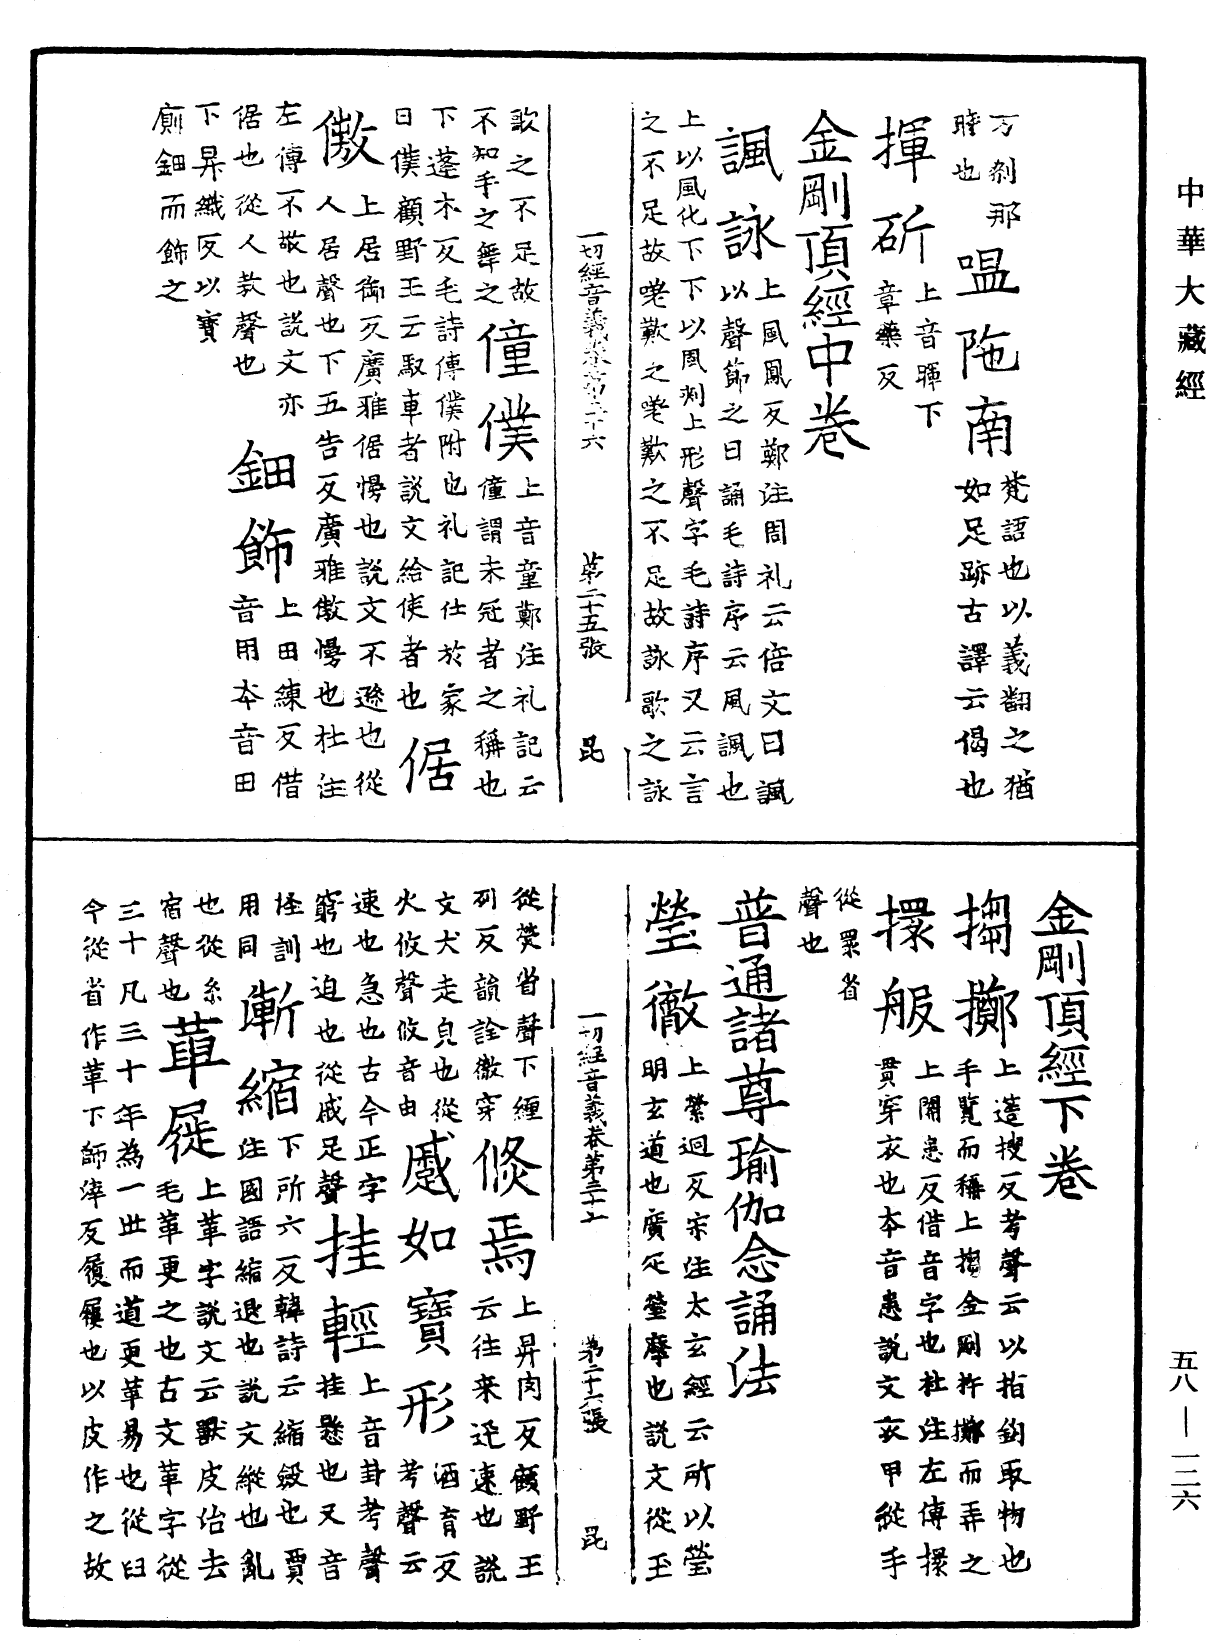 中華大藏經
万刹那
時也
嗢陁南
梵語也以義翻之猶
如足跡古譯云偈也
揮斫
上音暉下
章藥反
金剛頂經中卷
諷詠
上風鳳反鄭注周礼云倍文曰諷
以聲節之曰誦毛詩序云風諷也
上以風化下下以風刺上形聲字毛詩序又云言
之不足故嗟歎之嗟歎之不足故詠歌之詠
一切經音義卷第三十六
第二十五張
昆
歌之不足故
不知手之舞之
僮僕
上音童鄭注礼記云
僮謂未冠者之稱也
下蓬木反毛詩傳僕附也礼記仕於家
曰僕顧野王云馭車者說文給使者也
倨
傲
上居御反廣雅倨慢也說文不遜也從
人居聲也下五告反廣雅傲慢也杜注
左傳不敬也說文亦
倨也從人敖聲也
鈿飾
上田練反借
音用本音田
下昇織反以寶
廁鈿而飾之
金剛頂經下卷
搊擲
上㨄搜反考聲云以指鉤取物也
手覽而稱上搊金剛杵擲而弄之
擐服
上關患反借音字也杜注左傳擐
貫穿衣也本音患說文衣甲從手
從睘省
聲也
普通諸尊瑜伽念誦法
瑩徹
上縈迴反宋注太玄經云所以瑩
明玄道也廣疋瑩摩也說文從玉
一切經音義卷第三十六
第二十六張
昆
從熒省聲下纏
列反韻詮徹穿
倏焉
上昇肉反顧野王
云往來迅速也說
文犬走皃也從
火攸聲攸音由
蹙如寶形
酒育反
考聲云
速也急也古今正字
窮也迫也從戚足聲
挂輕
上音卦考聲
挂懸也又音
怪訓
用同
漸縮
下所六反韓詩云縮斂也賈
注國語縮退也說文縱也亂
也從糸
宿聲也
革屣
上革字說文云獸皮治去
毛革更之也古文革字從
三十凡三十年為一世而道更革易也從臼
今從省作革下師滓反履屨也以皮作之故
五八—一二六